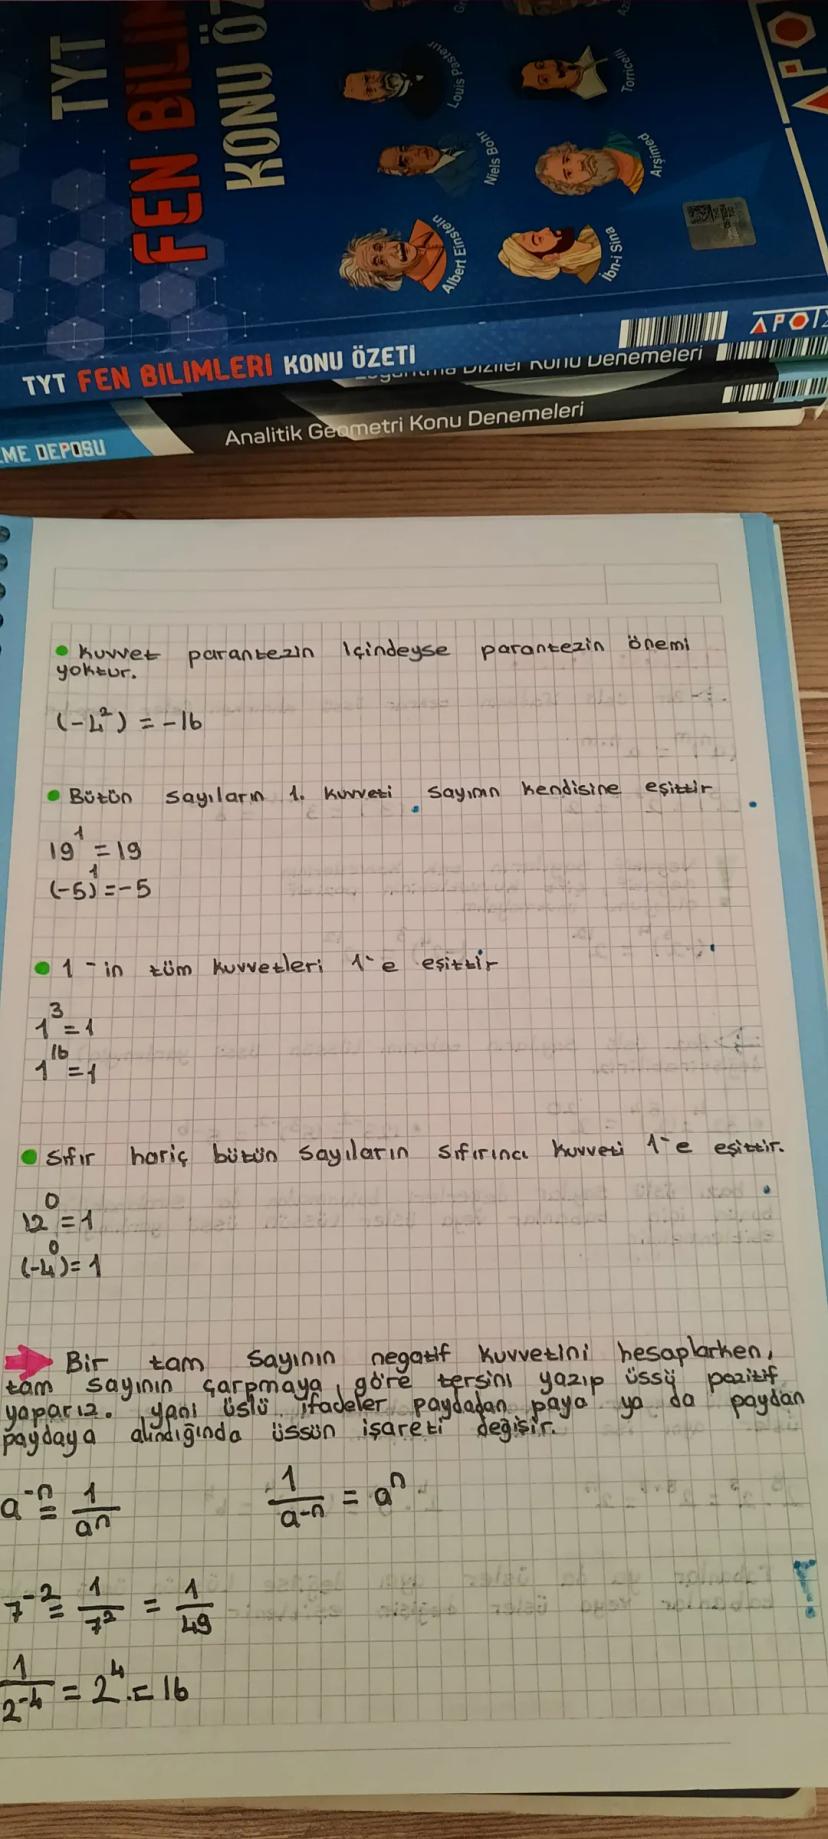 TYT
FEN BİLİM
KONU ÖZ
Louis Pasteur
Torricelli
Niels Bohr
Arşimed
Albert Einstein
İbn-i Sina
TYT FEN BİLİMLERİ KONU ÖZETİ
Diziler Konu Denemeleri
Analitik Geometri Konu Denemeleri
ME DEPOSU
• Kuvvet parantezin İçindeyse parantezin önemi
yoktur.
(-4²) = -16
• Bütün sayıların 1. kuvveti sayının kendisine eşittir
19¹ = 19
(-5)¹ = -5
• 1 - in tüm kuvvetleri 1'e eşittir
1³ = 1
1¹⁶ = 1
• Sıfır hariç bütün sayıların sıfırıncı kuvveti 1'e eşittir.
12⁰ = 1
(-4)⁰ = 1
Bir tam sayının negatif kuvvetini hesaplarken,
tam sayının çarpmaya göre tersini yazıp üssü pozitif
yaparız. yani üslü ifadeler paydadan paya ya da paydan
paydaya alındığında üssün işareti değişir.
a⁻ⁿ = 1/aⁿ 1/a⁻ⁿ = aⁿ
7⁻² = 1/7² = 1/49
1/2⁻⁴ = 2⁴ = 16